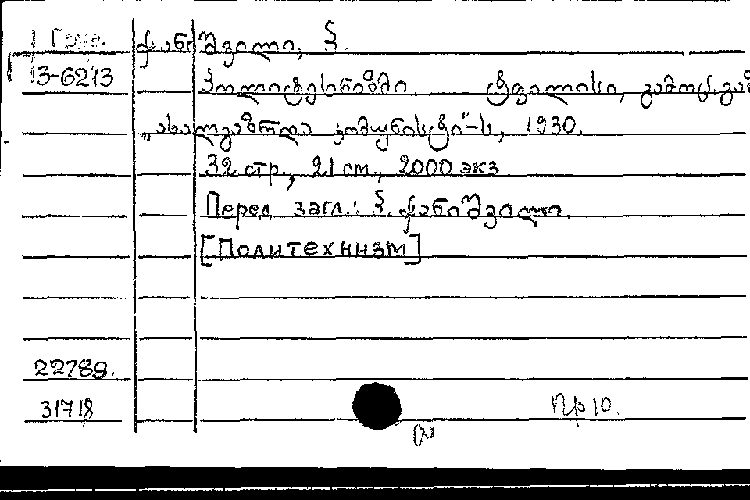 Груз. ჭანიშვილი, ნ.
3-6273 პოლიტეხნიზმი. ტფილისი, გამოც. გაზ.
„ახალგაზრდა კომუნისტი"-ს, 1930.
32 стр., 21 cm., 2000 экз.
Перед загл.: ნ. ჭანიშვილი.
[Политехнизм]
22789.
31718
Пр 10.